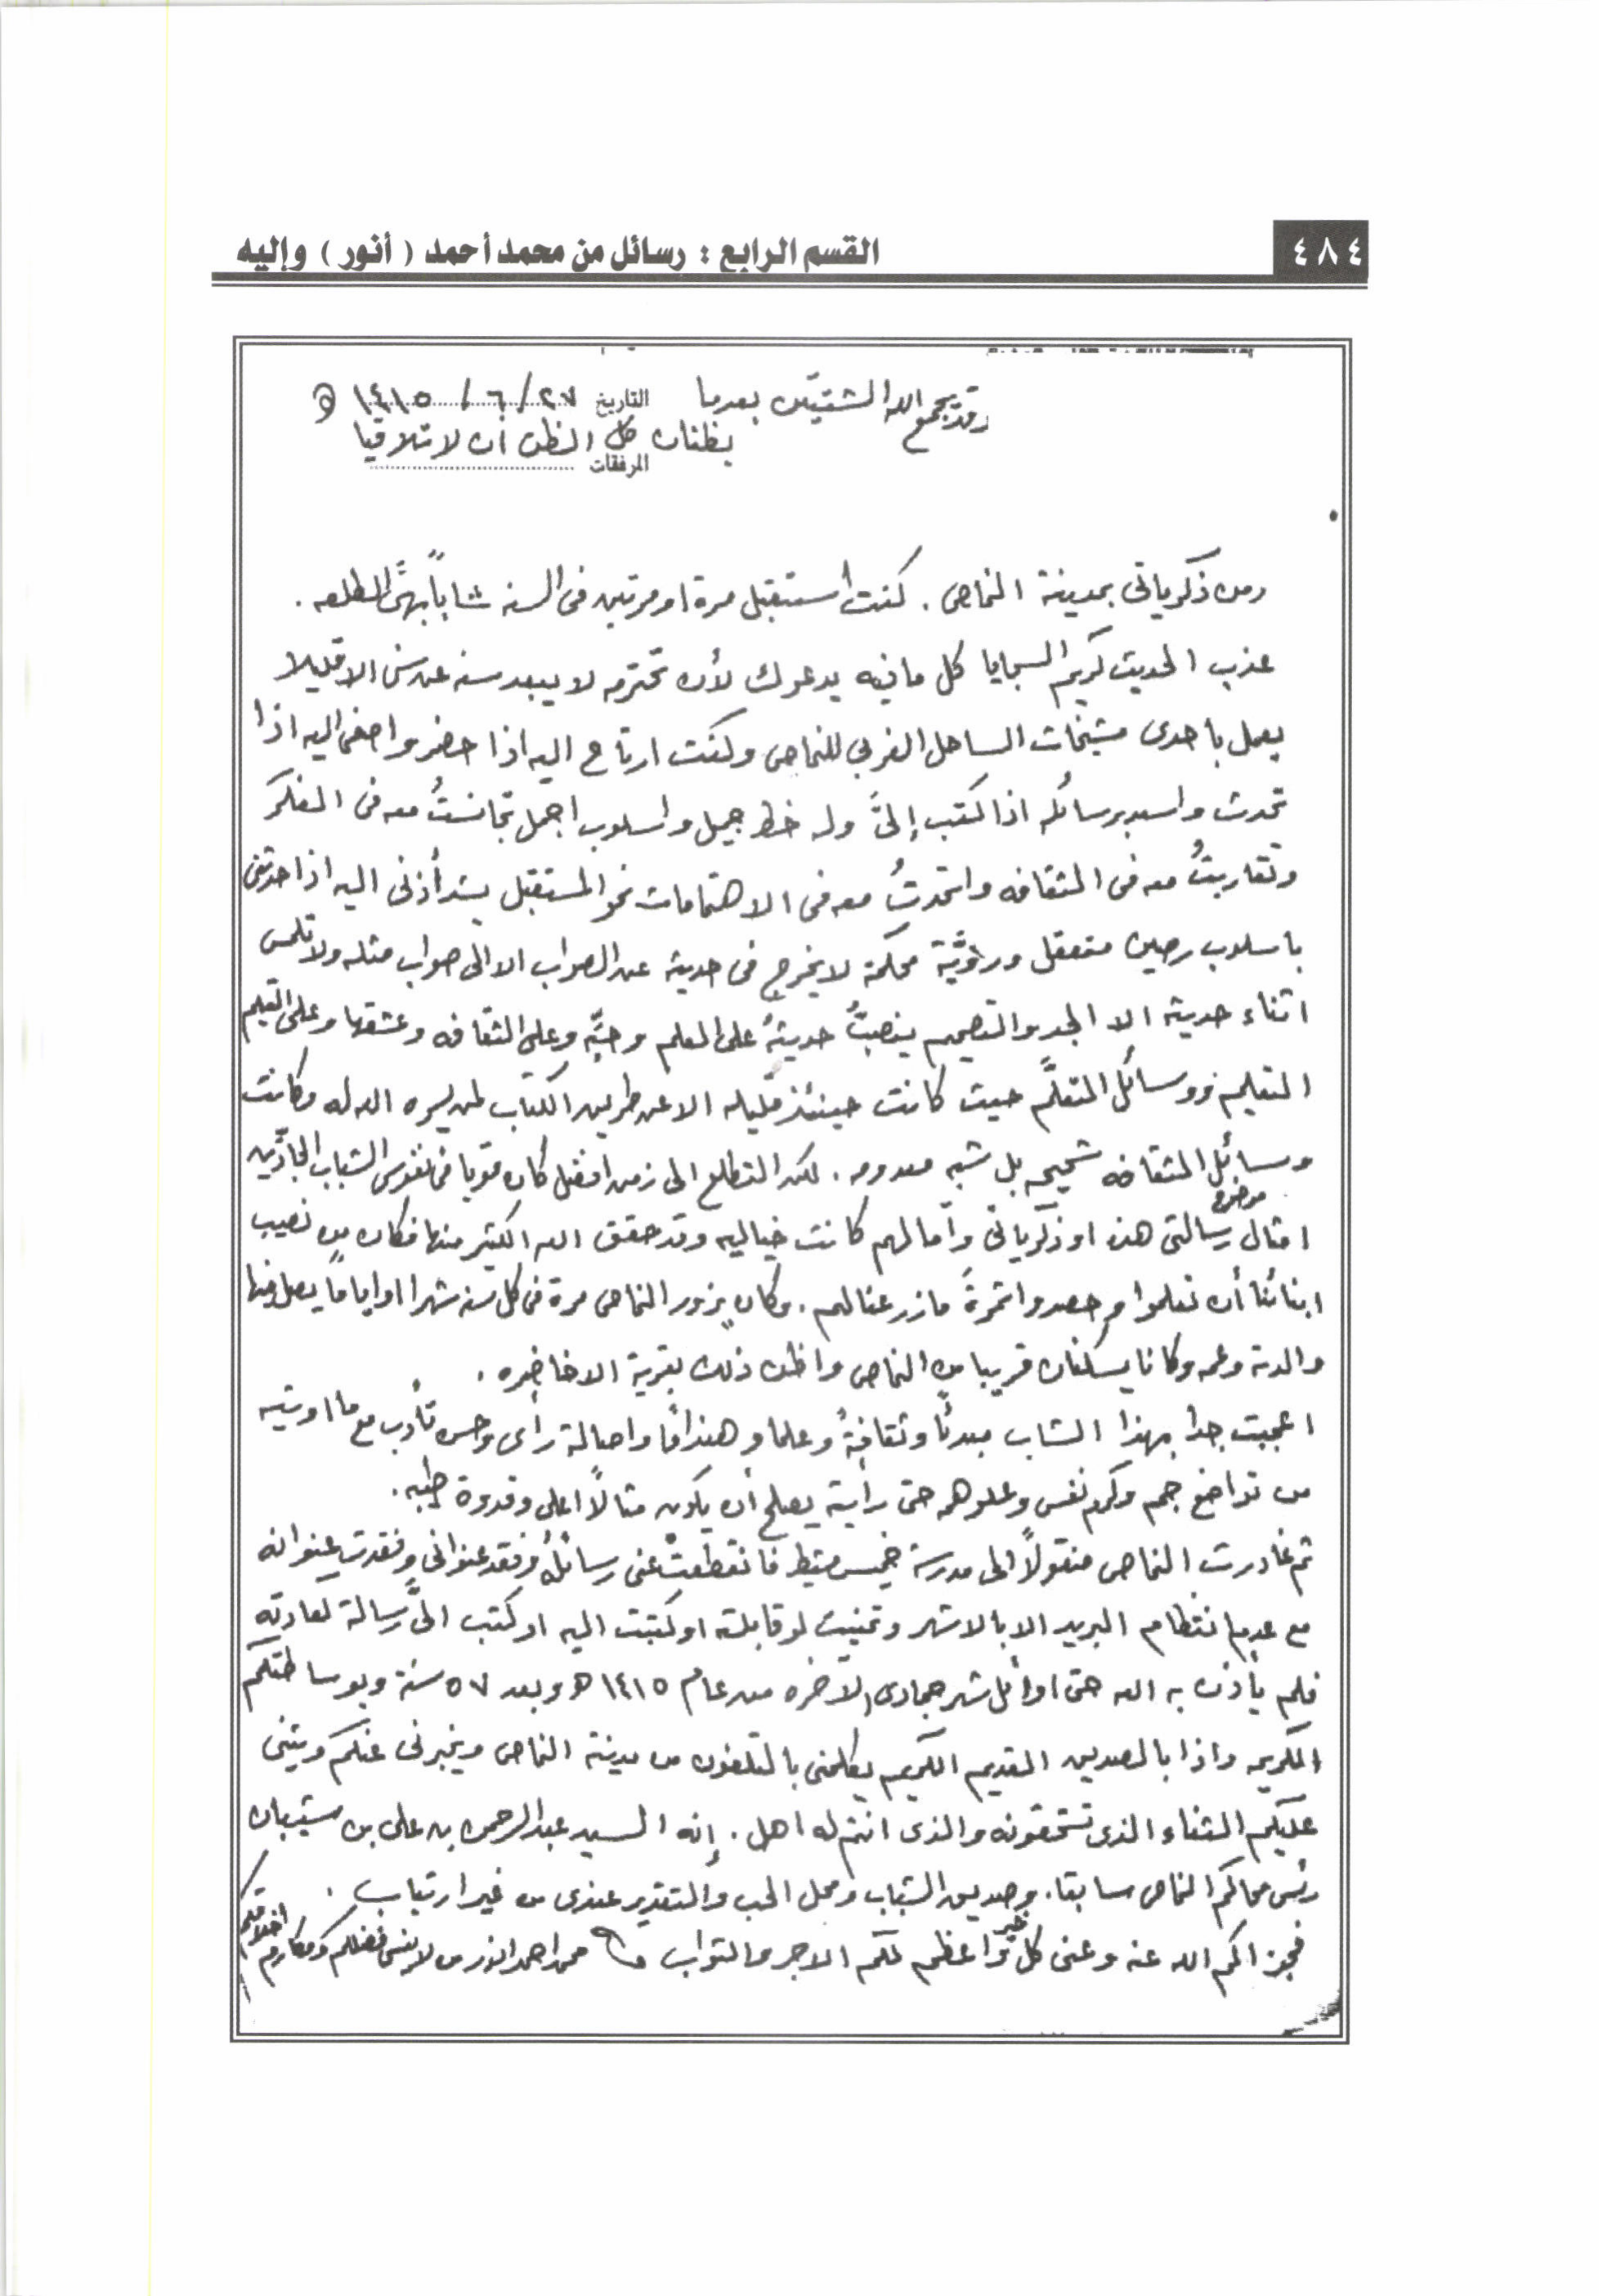 ٤٨٤
القسم الرابع : رسائل من محمد أحمد ( أنور ) وإليه
وقد يجمع الله الشتيتين بعدما
التاريخ ٢٧ / ٦ / ١٤١٥ هـ
يظنان كل الظن أن لا تلاقيا
المرفقات
ومن ذكرياتى بمدينة النماص . كنت أستقبل مرة او مرتين فى السنه شاباً بهىَّ الطلعه .
عذب الحديث كريم السجايا كل ما فيه يدعوك لأن تحترمه لا يبعد سنه عن سنى الا قليلا
يعمل باحدى مشيخات الساحل الغربي للنماص وكنت ارتاح اليه اذا حضر واصغى اليه اذا
تحدث واسعد برسائله اذا كتب إلىَّ وله خط جميل واسلوب اجمل تجانستُ معه فى الفكر
وتقاربتُ معه فى الثقافه واتحدتُ معه فى الاهتمامات نحو المستقبل يشد أذنى اليه اذا حدثنى
باسلوب رصين متعقل ورويَّة محكمة لا يخرج فى حديثه عن الصواب الا الى صواب مثله ولا تلمس
اثناء حديثه الا الجد والتصميم ينصبُّ حديثهُ على العلم وحبِّه وعلى الثقافه وعشقها وعلى التعليم
التعليم ووسائل التعلَّم حيث كانت حينئذ قليله الا عن طريق الكتاب لمن يسره الله له وكانت
وسائل الثقافه شحيحه بل شبه معدومه . لكن التطلع الى زمن افضل كان قويا فى نفوس الشباب الجادِّين
امثال موضوع رسالتى هذه او ذكرياتى وآمالهم كانت خياليه وقد حقق الله الكثير منها فكان من نصيب
ابنائنا أن تعلموا وحصدوا ثمرةَ ما زرعنا لهم . وكان يزور النماص مرة فى كل سنه شهرا او اياماً يصل فيها
والدته وعمه وكانا يسكنان قريبا من النماص واظن ذلك بقرية الاخاضره .
اعجبت جدا بهذا الشاب مبدئًا وثقافةً وعلما وهنداما واصالة رأى وحسن تأدب مع ما اوتيه
من تواضع جم وكرم نفس وعلو همه حتى رأيته يصلح أن يكون مثالاً اعلى وقدوة طيبه .
ثم غادرت النماص منقولاً الى مدرسة خميس مشيط فانقطعتْ عنى رسائلُهُ وفقد عنوانى وفقدت عنوانه
مع عدم انتظام البريد الا بالاشهر وتمنيت لو قابلته او كتبت اليه او كتب الىَّ رسالة كعادته
فلم يأذن به الله حتى اوائل شهر جمادى الآخره من عام ١٤١٥ هـ وبعد ٥٧ سنة وبوساطتكم
الكريمه واذا بالصديق القديم الكريم يكلمنى بالتلفون من مدينة النماص ويخبرنى عنكم ويثنى
عليكم الثناء الذى تستحقونه والذى انتم له اهل . إنه السيد عبدالرحمن بن على بن شيبان
رئيس محاكم النماص سابقا . وصديق الشباب ومحل الحب والتقدير عندى من غير ارتياب .
فجزاكم الله عنه وعنى كل خير واعظم لكم الاجر والثواب محمد احمد انور من لا ينسى فضلكم ومكارم اخلاقكم